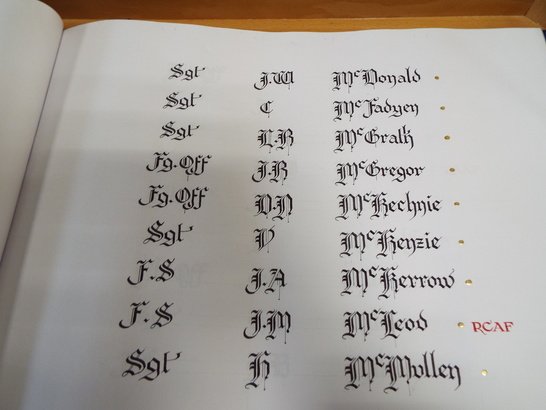 Sgt J.W McDonald
Sgt C McFadyen
Sgt L.B McGrath
Fg.Off J.B McGregor
Fg.Off D.N McKechnie
Sgt V McKenzie
F.S J.A McKerrow
F.S J.M McLeod RCAF
Sgt H McMollen